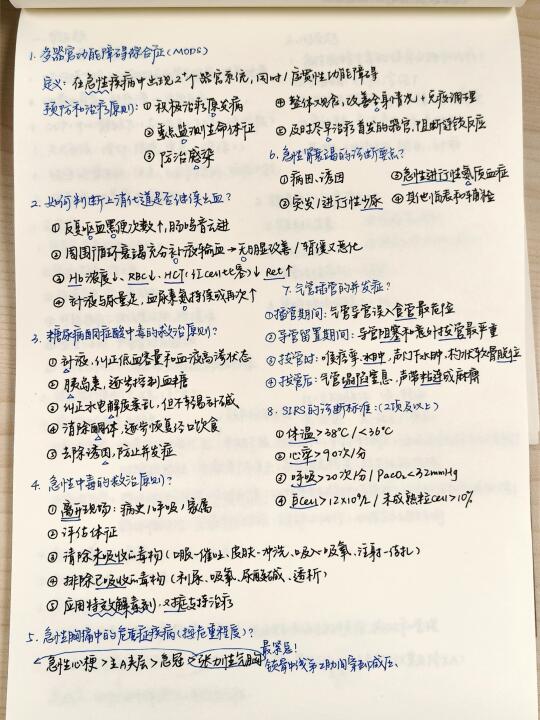 1. 多器官功能障碍综合征(MODS)
定义: 在急性疾病中出现2⁺个器官系统,同时/序贯性功能障碍
预防和治疗原则: ①积极治疗原发病
②重点监测生命体征
③防治感染
④整体观念,改善全身情况+免疫调理
⑤及时尽早治疗首发的器官,阻断连锁反应
2. 如何判断上消化道是否继续出血?
①反复呕血黑便次数↑,肠鸣音亢进
②周围循环衰竭充分补液输血→无明显改善/暂缓又恶化
③Hb浓度↓、RBC↓、HCT(红cell比容)↓ Ret↑
④补液与尿量足,血尿素氮持续或再次↑
3. 糖尿病酮症酸中毒的救治原则?
①补液,纠正低血容量和血液高渗状态
②胰岛素,逐步控制血糖
③纠正水电解质紊乱,但不轻易补碱
④清除酮体,逐步恢复经口饮食
⑤去除诱因,防止并发症
4. 急性中毒的救治原则?
①离开现场: 病史/呼吸/家属
②评估体征
③清除未吸收的毒物(口服—催吐、皮肤—冲洗、吸入—吸氧、注射—结扎)
④排除已吸收的毒物(利尿、吸氧、尿酸碱、透析)
⑤应用特效解毒剂,对症支持治疗
5. 急性胸痛中的危重症疾病(按危重程度)?
急性心梗>主A夹层>急冠>张力性气胸
最紧急!
锁骨中线第2肋间穿刺减压
6. 急性肾衰竭的诊断要点?
①病因、诱因
②突发/进行性少尿
③急性进行性氮质血症
④其他临表和辅检
7. 气管插管的并发症?
①插管期间: 气管导管误入食管最危险
②导管留置期间: 导管阻塞和意外拔管最严重
③拔管时: 喉痉挛,水肿,声门下水肿,杓状软骨脱位
④拔管后: 气管塌陷窒息,声带粘连或麻痹
8. SIRS的诊断标准:(2项及以上)
①体温>38℃/<36℃
②心率>90次/分
③呼吸>20次/分/PaCO₂<32mmHg
④白cell>12×10⁹/L/未成熟粒cell>10%